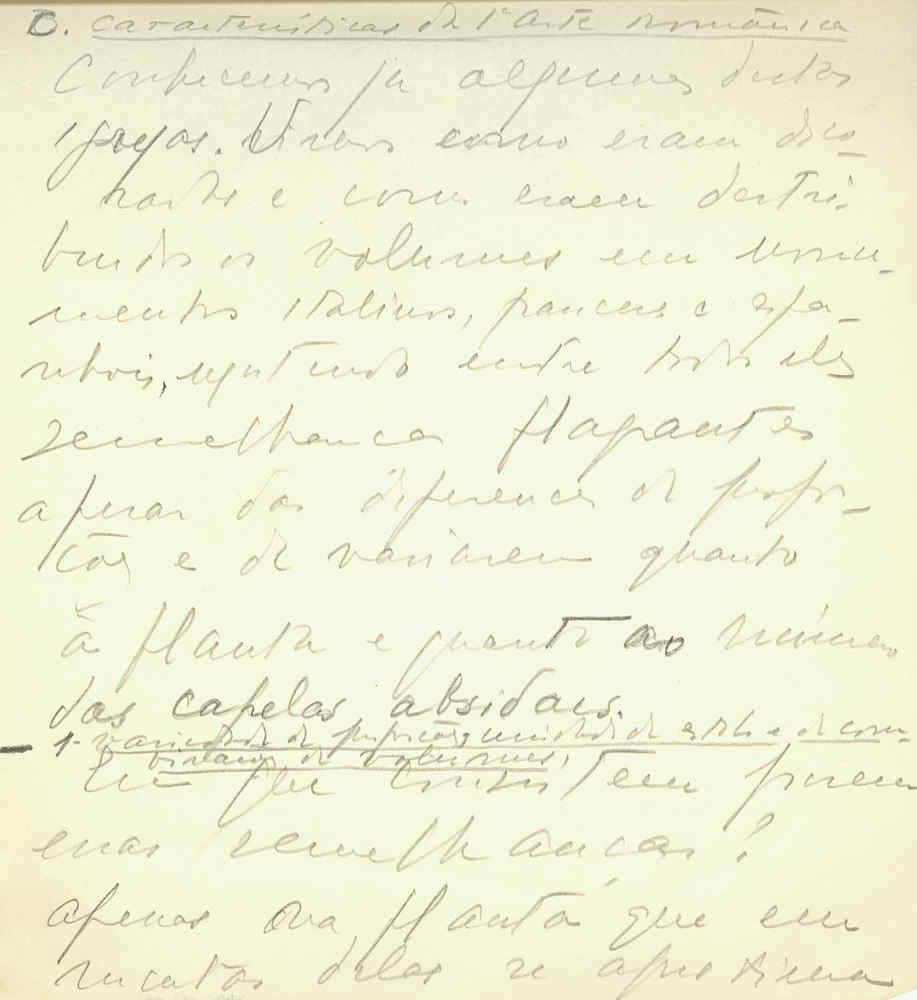 D. características da 1ª arte românica
Conhecemos já algumas destas
igrejas. Vimos como eram deco-
e como eram distri-
buidos os volumes em monu-
mentos italianos, franceses e espa-
nhois, entre todos eles
semelhanças flagrantes
apesar das diferenças de propor-
ções e de variarem quanto
à planta e quanto ao número
das capelas absidais.
1- variedade de proporções, unidade de estilo e de com-
binação de volumes.
Em que consistem porem
essas semelhanças?
apenas na planta que em
muitas delas se aproxima